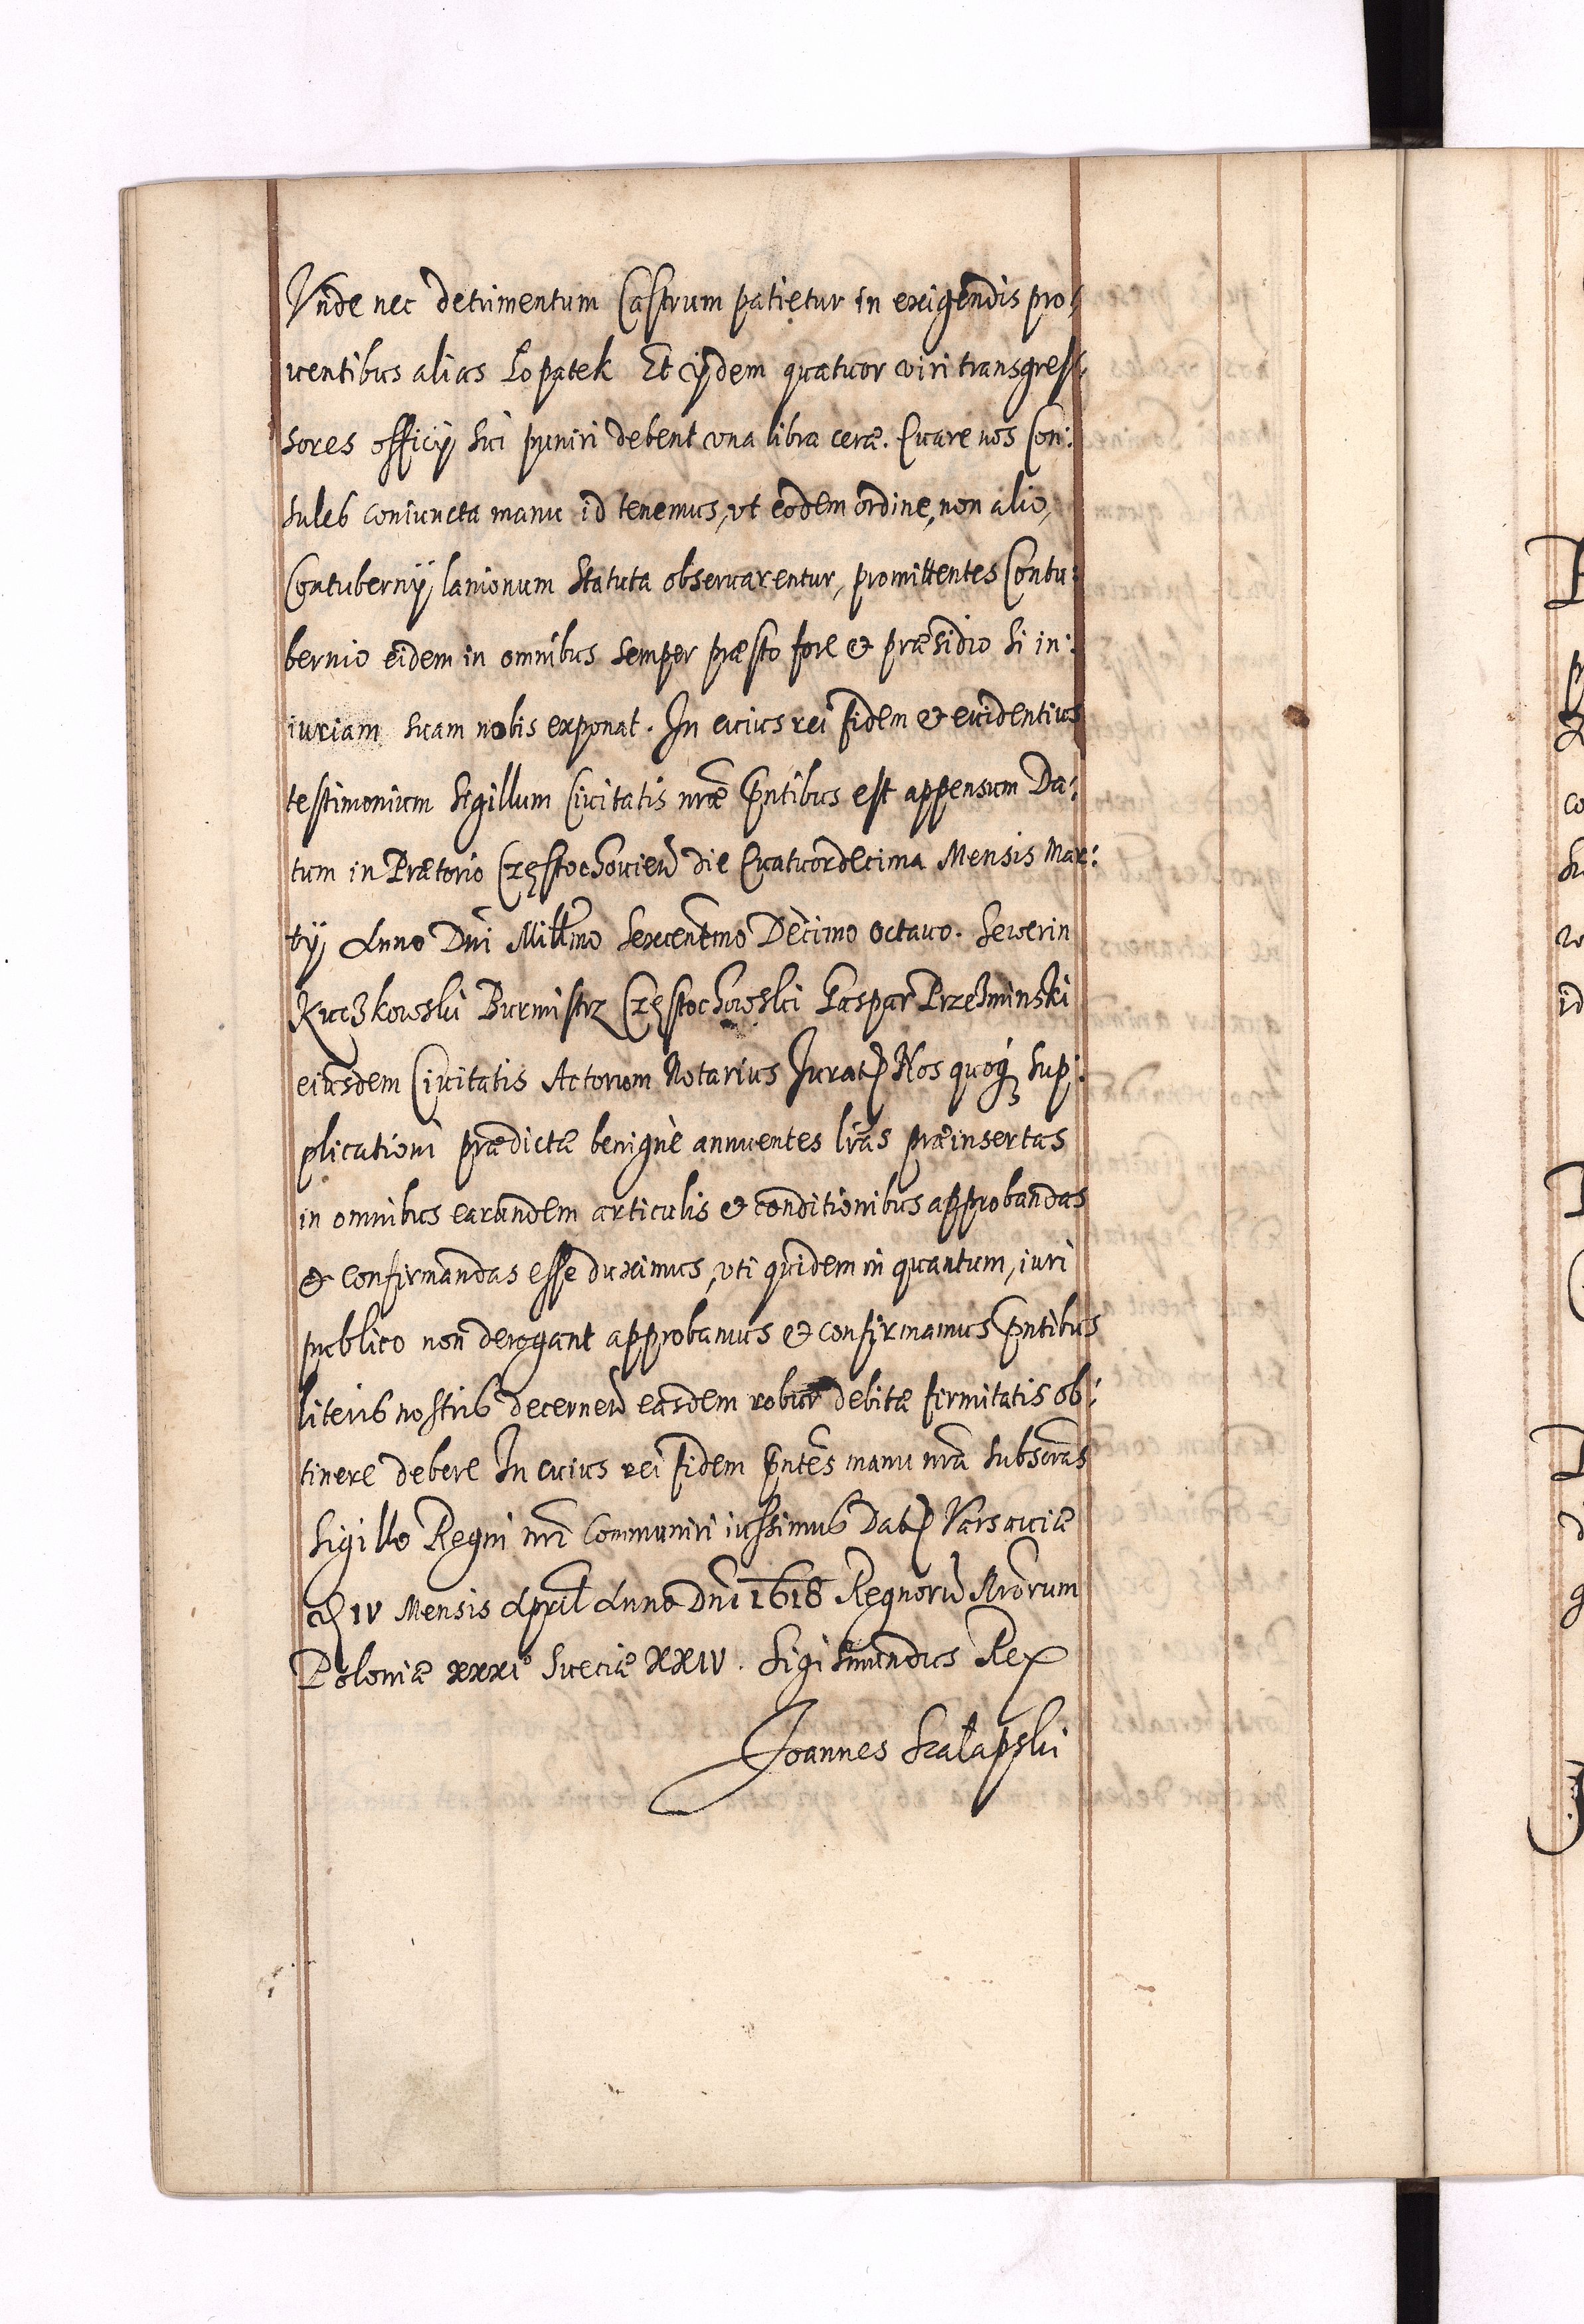 Vnde nec detrimentum Castrum patietur in exigendis pro:
uentibus alias Łopatek Et ijdem quatuor viri transgres:
sores officij sui puniri debent vna libra ceræ. Quare nos Con:
sules coniuncta manu id tenemus, vt eodem ordine, non alio,
Contubernij lanionum Statuta obseruarentur, promittentes Contu:
bernio eidem in omnibus semper præsto fore & præsidio si in:
iuriam suam nobis exponat. In cuius rei fidem & euidentius
testimonium Sigillum Ciuitatis nræ pntibus est appensum Da:
tum in Prætorio Częstochouien die Quatuordecima Mensis Mar:
tij Anno Dni Millmo Sexcentmo Decimo octauo. Sewerin
Kuczkowski Burmistrz Częstochowski Gaspar Przeminski
eiusdem Ciuitatis Actorum Notarius Jurat Nos quoq sup:
plicationi prædictæ benignè annuentes lras præinsertas
in omnibus earundem articulis & conditionibus approbandas
& confirmandas esse duximus, vti quidem in quantum, iuri
publico non derogant approbamus & confirmamus pntibus
literis nostris decernen easdem robur debitæ firmitatis ob:
tinere debere In cuius rei fidem pntes manu nra subscras
Sigillo Regni nri Communiri iussimus Dat Varsauiæ
d IV Mensis April Anno Dni 1618 Regnorum Nrorum
Poloniæ XXXI Sueciæ XXIV. Sigismundus Rex
Joannes